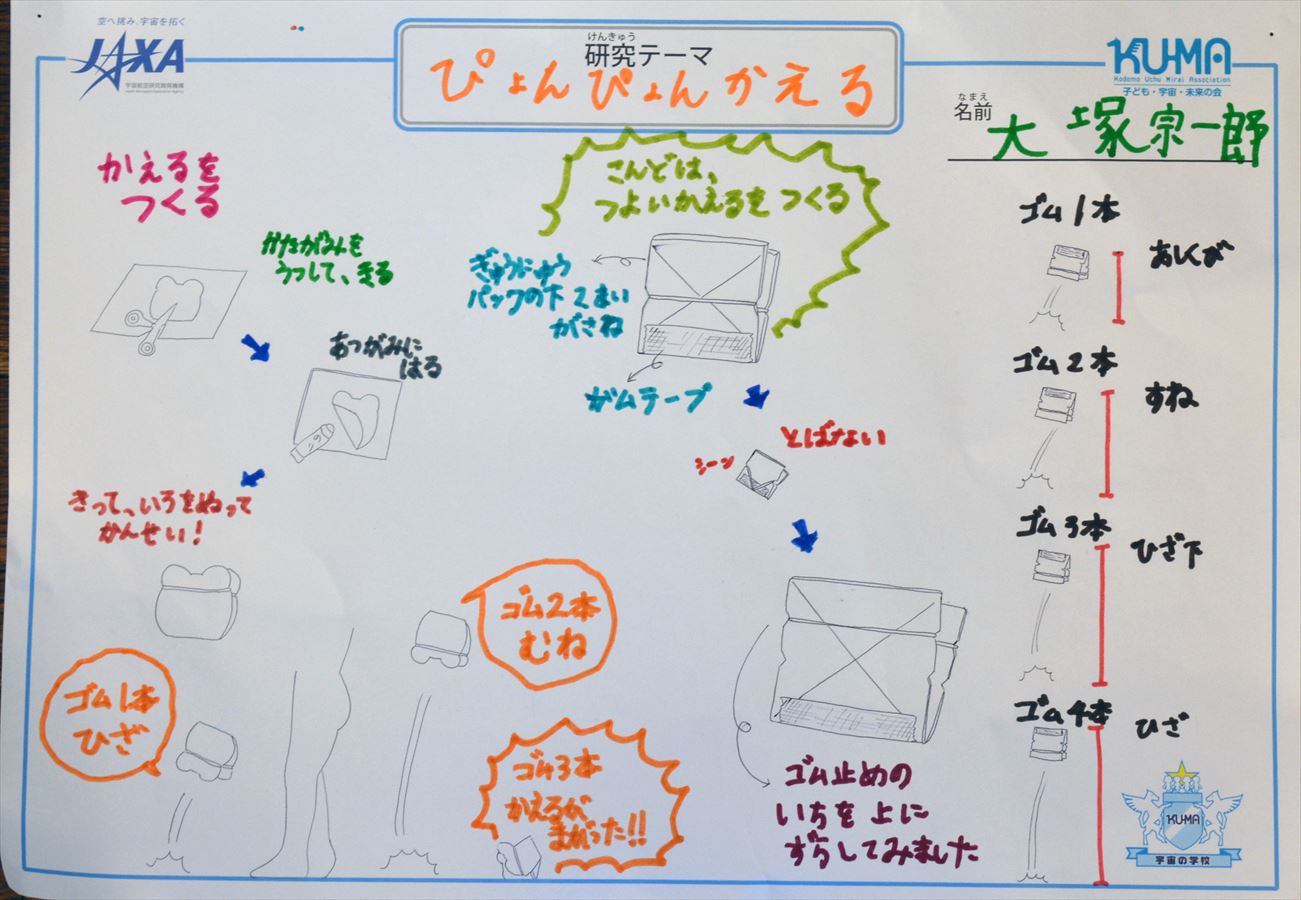 空へ挑み、宇宙を拓く
JAXA
宇宙航空研究開発機構
Japan Aerospace Exploration Agency
けんきゅう
研究テーマ
ぴょんぴょんかえる
KU-MA
Kodomo Uchu Mirai Association
子ども・宇宙・未来の会
なまえ
名前
大塚宗一郎
かえるを
つくる
かたがみを
うつして、きる
あつがみに
はる
きって、いろをぬって
かんせい!
ゴム1本
ひざ
ゴム2本
むね
ゴム3本
かえるが
まがった!!
こんどは、
つよいかえるをつくる
ぎゅうにゅう
パックの下2まい
がさね
ガムテープ
とばない
シーン
ゴム止めの
いちを上に
ずらしてみました
ゴム1本
あしくび
ゴム2本
すね
ゴム3本
ひざ下
ゴム4本
ひざ
KU-MA
宇宙の学校